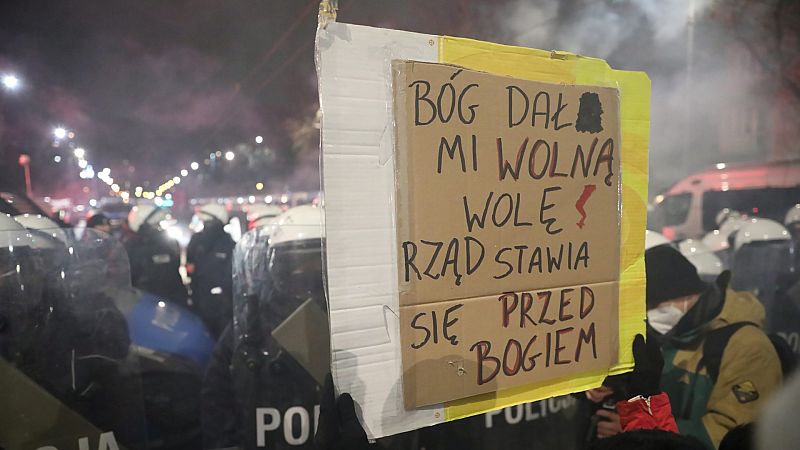 BÓG DAŁ
MI WOLNĄ
WOLĘ!
RZĄD STAWIA
SIĘ PRZED
BOGIEM
POLICJA